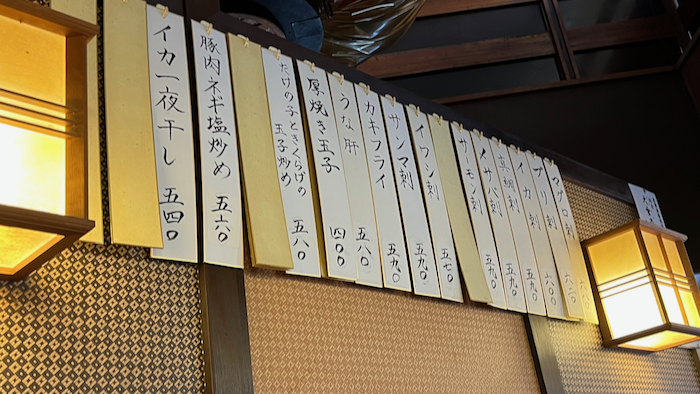 マグロ刺
ブリ刺 六二〇
イカ刺 六〇〇
真鯛刺 五九〇
〆サバ刺 五九〇
サーモン刺 五九〇
イワシ刺 五七〇
サンマ刺 五九〇
カキフライ 五九〇
うな肝 五八〇
厚焼き玉子 四〇〇
たけの子ときくらげの
玉子炒め 五八〇
豚肉ネギ塩炒め 五六〇
イカ一夜干し 五四〇